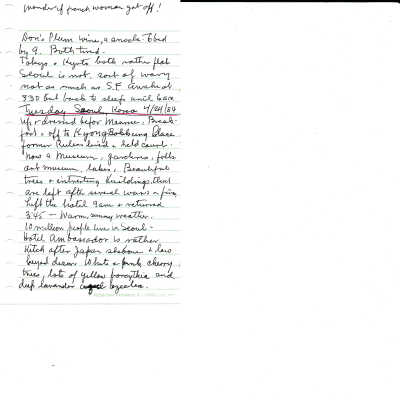 wonder if french woman got off!
Don's Plum wine, a snack to bed
by 9. Both tired.
Tokyo & Kyoto both rather flat
Seoul is not. sort of wavy
not as much as S.F. awake at
330 but back to sleep until 6 am
Tuesday Seoul, Korea 4/24/84
up & dressed before Mannie. Break-
fast & off to Kyongbokkung Place
former Rulers lived & held court.
now a museum, gardens, folk
art museum, lakes, Beautiful
trees & interesting buildings that
are left after several wars & fires
Left the hotel 9 am & returned
3:45 — Warm, sunny weather.
10 million people live in Seoul.
Hotel Ambassador is rather
kitch after Japan &
decor. White & pink cherry
trees, lots of yellow forsythia and
deep lavender azaleas.